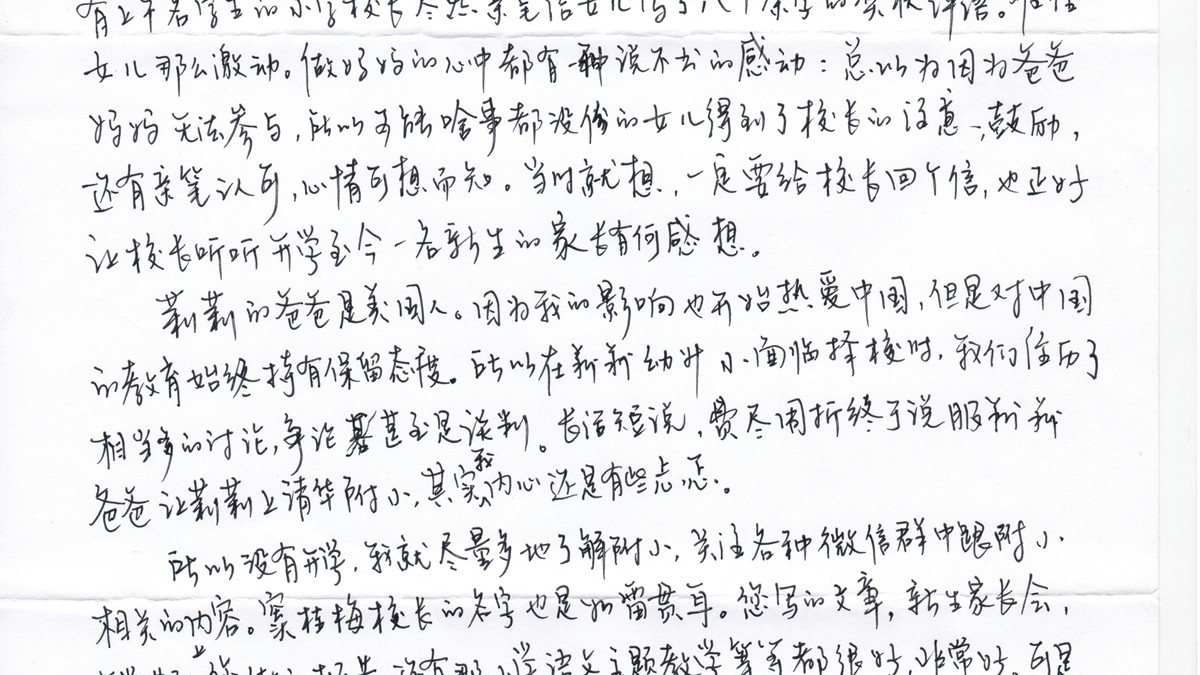 有上千名学生的小学校长竟然亲笔给女儿写了八个亲字的奖状评语。
女儿那么激动。做妈妈的心中都有一种说不出的感动：总以为因为爸爸
妈妈无法参与，所以可能啥事都没份的女儿得到了校长的注意、鼓励，
还有亲笔认可，心情可想而知。当时就想，一定要给校长回个信，也正好
让校长听听开学至今一名新生的家长有何感想。
莉莉的爸爸是美国人。因为我的影响也开始热爱中国，但是对中国
的教育始终持有保留态度。所以在莉莉幼升小面临择校时，我们经历了
相当多的讨论，争论甚至是谈判。长话短说，费尽周折终于说服莉莉
爸爸让莉莉上清华附小，其实我内心还是有些忐忑。
所以没有开学，我就尽量多地了解附小，关注各种微信群中跟附小
相关的内容。窦桂梅校长的名字也是如雷贯耳。您写的文章，新生家长会，
还有那小学语文主题教学等等都很好，非常好。可是